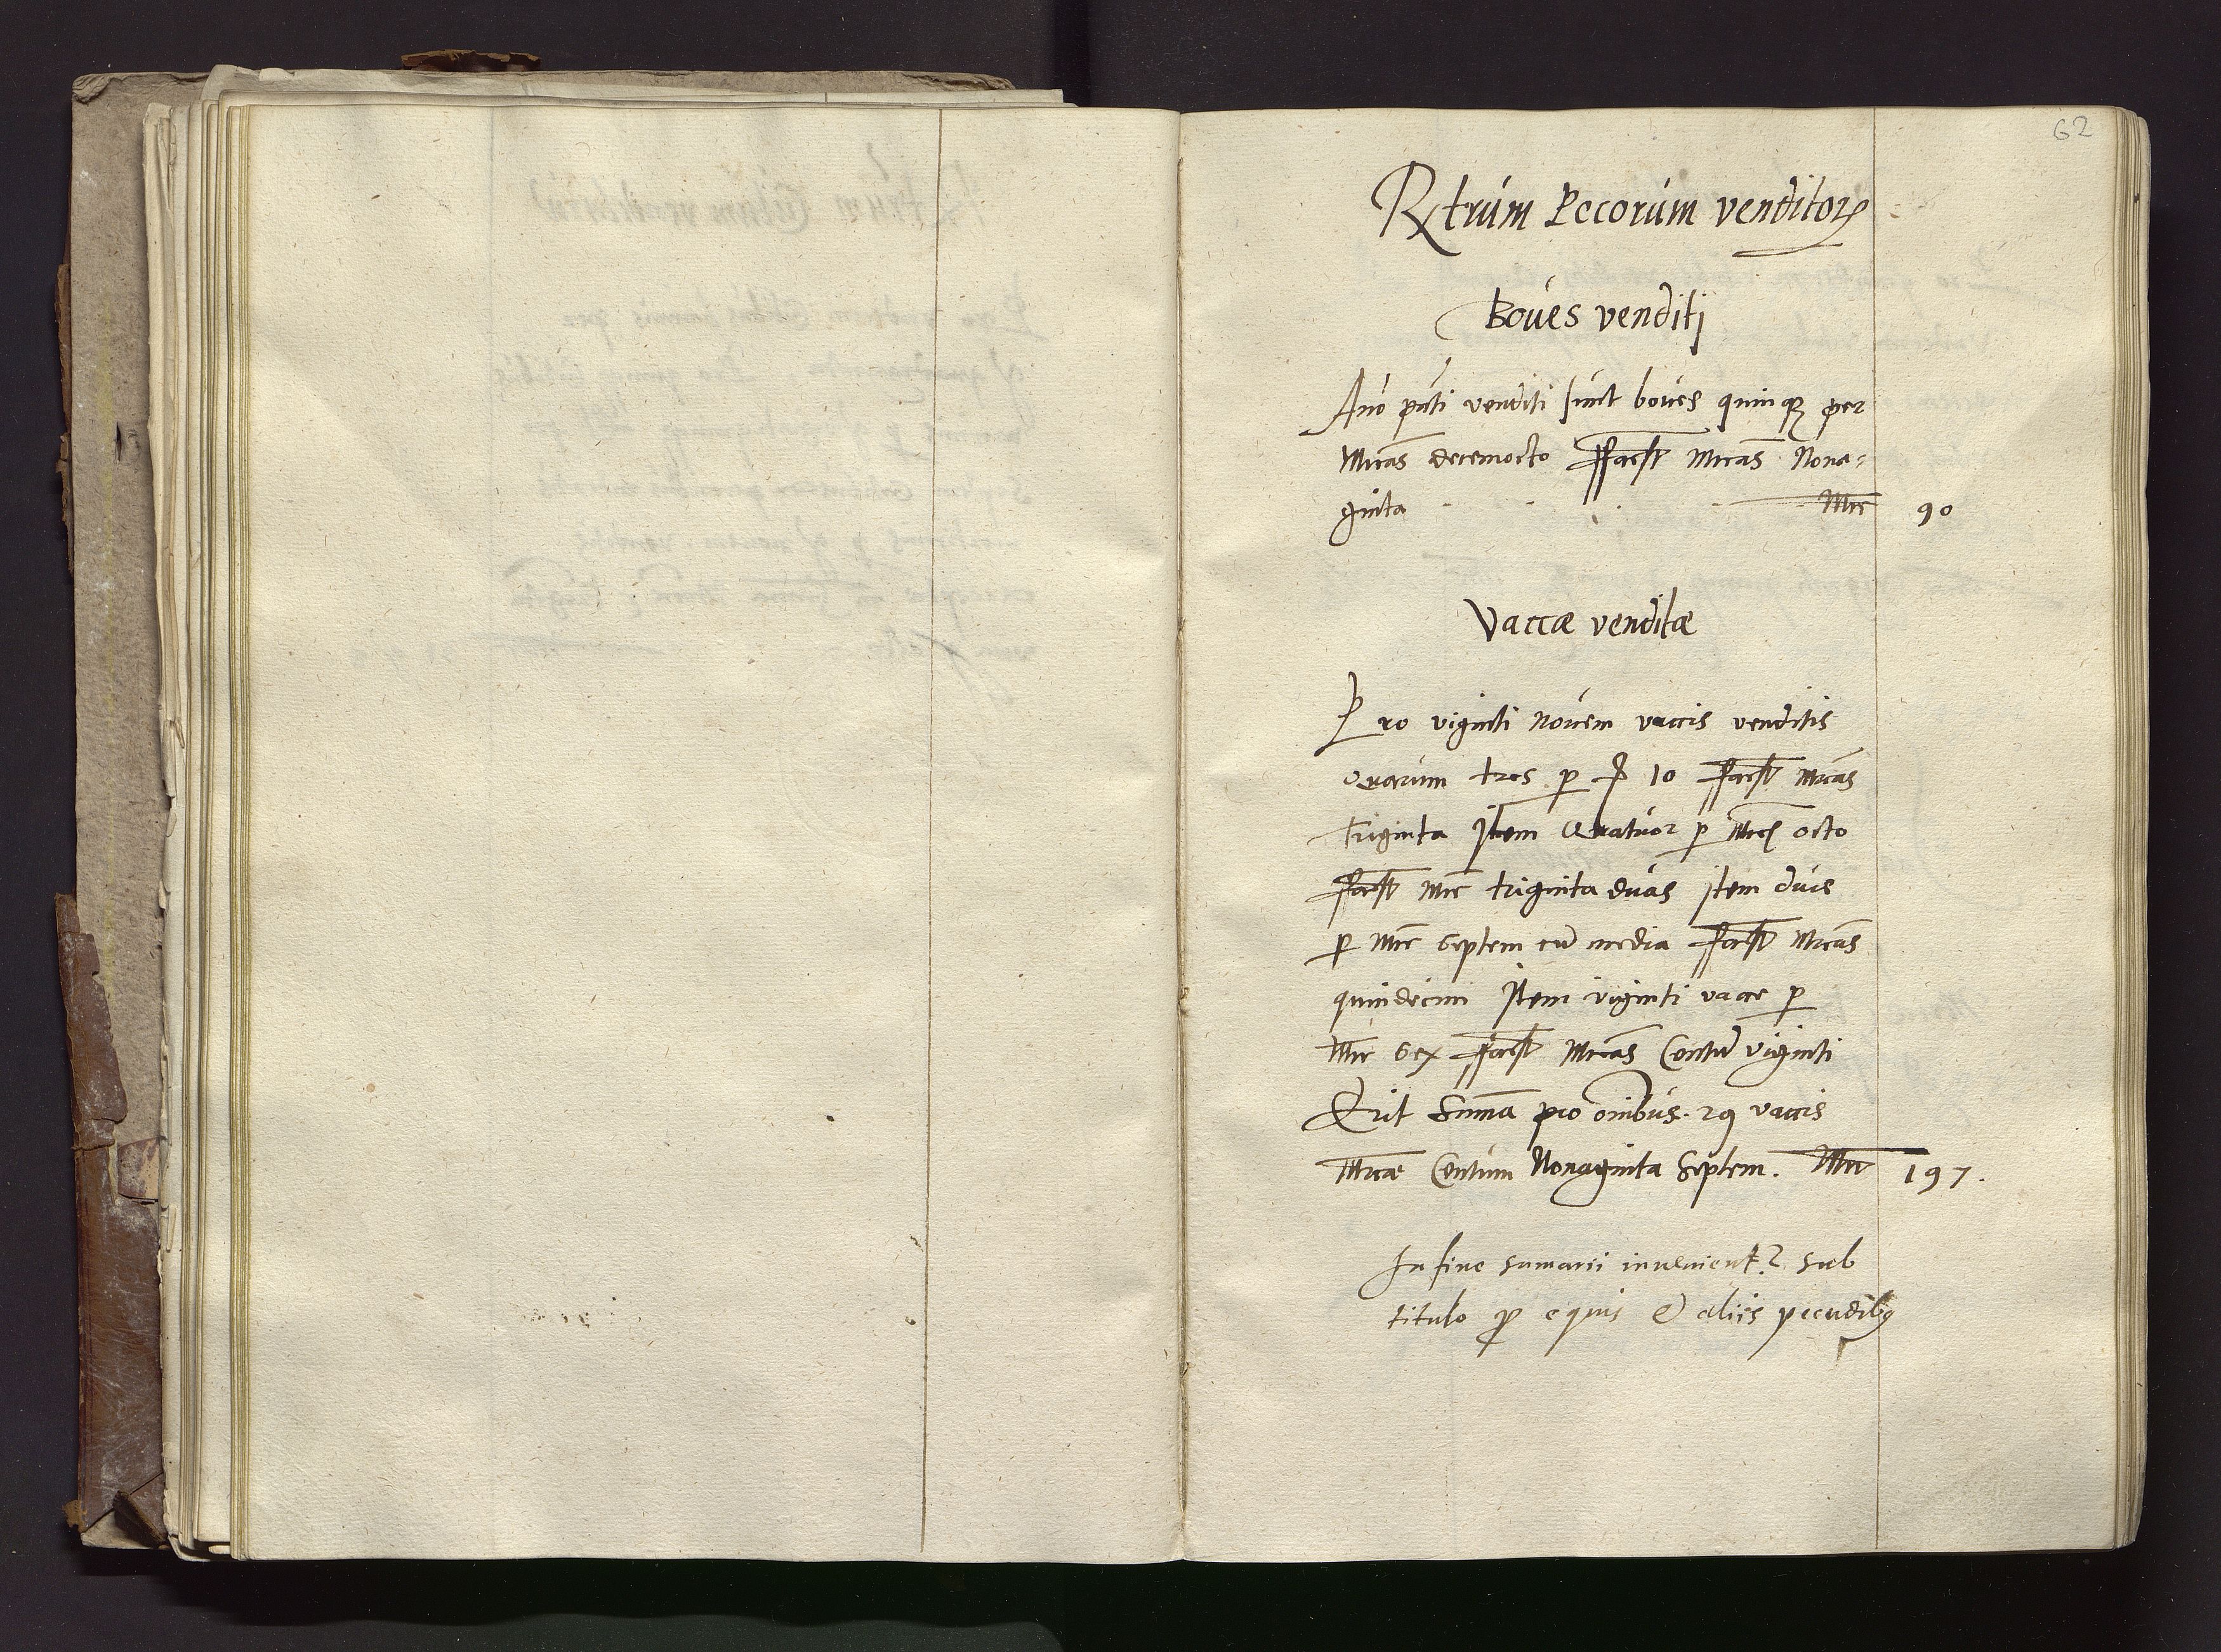 62
Rtrum Pecorum venditoꝝ
Boues venditi
Año pñti venditi sunt boues quinqꝫ per
Mrcas decemocto facit Mrcas Nona⸗
ginta Mrc 90
Vaccæ venditæ
Pro viginti nouem vaccis venditis
quarum tres p 10 facit mrcas
triginta Item Quatuor p Mrcs octo
facit Mrc triginta duas item duis
p Mrc septem cũ media facit Mrcas
quindecim Item viginti vacce p
Mrc sex facit Mrcas Centũ viginti
Erit Sum̃a pro om̃ibus. 29 vaccis
Mrcæ Centum Nonaginta Septem. Mrc 197.
In fine sumarii inuenient᷑ sub
titulo p equis et aliis pecudibꝰ